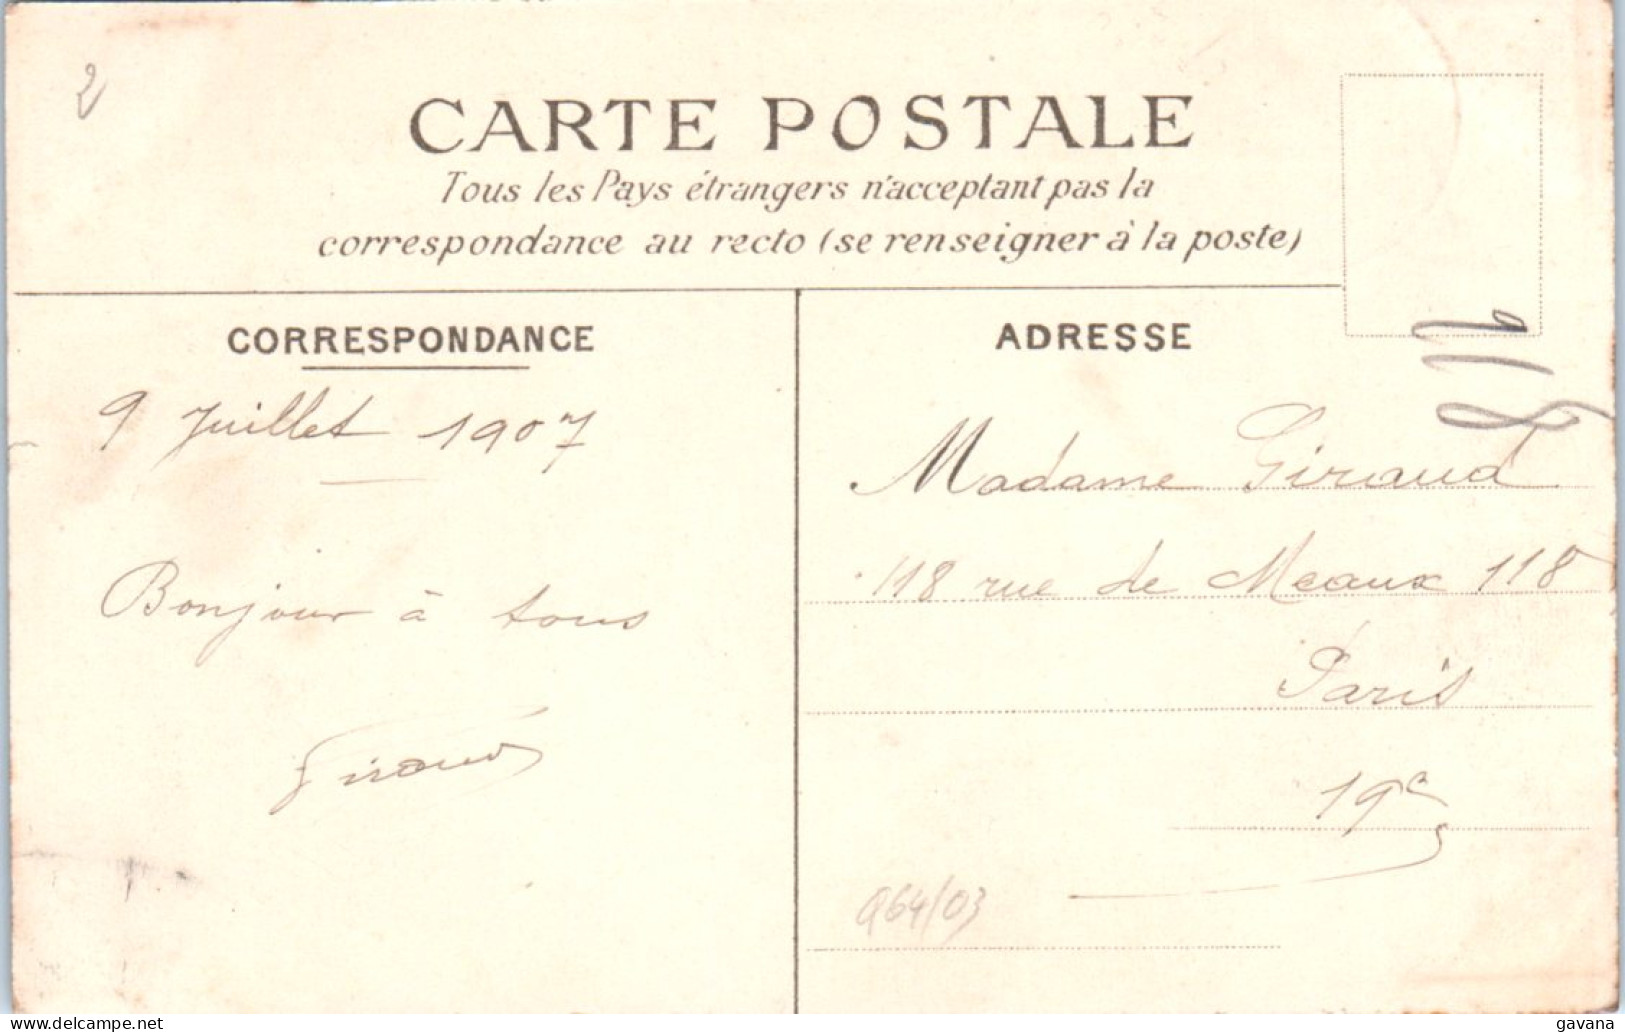 2
CARTE POSTALE
Tous les Pays étrangers n'acceptant pas la
correspondance au recto (se renseigner à la poste)
CORRESPONDANCE
9 Juillet 1907
Bonjour à tous
Giraud
ADRESSE
Madame Giraud
118 rue de Meaux 118
Paris
19e
Q64/03
delcampe.net
gavana